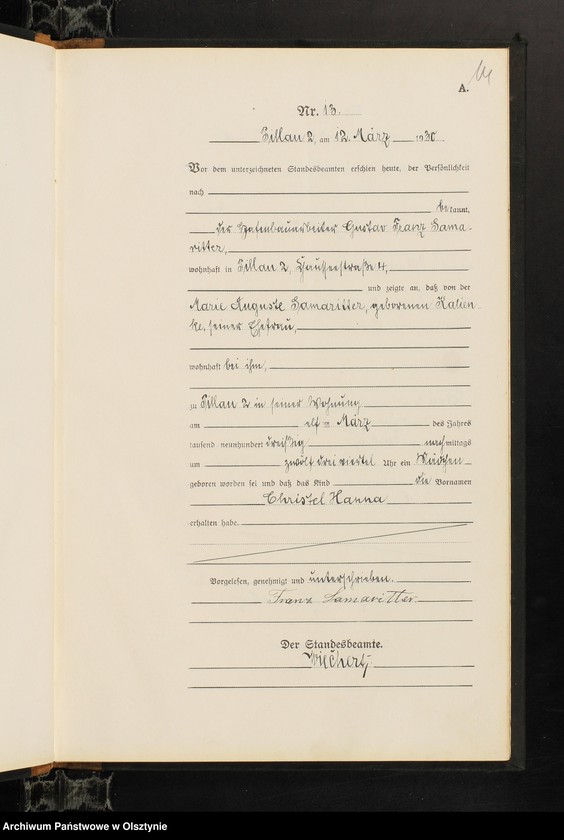 A.
Nr. 13.
Pillau 2, am 12. März 1930
Vor dem unterzeichneten Standesbeamten erschien heute, der Persönlichkeit
nach
bekannt,
der Hafenbauarbeiter Gustav Franz Sama-
ritter,
wohnhaft in Pillau 2, Chausseestraße 4,
und zeigte an, daß von der
Marie Auguste Samaritter, geborenen
seiner Ehefrau,
wohnhaft bei ihm,
zu Pillau 2 in seiner Wohnung
am elften März des Jahres
tausend neunhundert dreißig nachmittags
um zwölf drei viertel Uhr ein Mädchen
geboren worden sei und daß das Kind die Vornamen
Christel Hanna
erhalten habe.
Vorgelesen, genehmigt und unterschrieben.
Franz Samaritter
Der Standesbeamte.
Wiechert
Archiwum Państwowe w Olsztynie